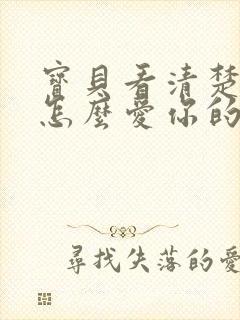 寶貝看清楚
怎麼愛你的
尋找失落的愛